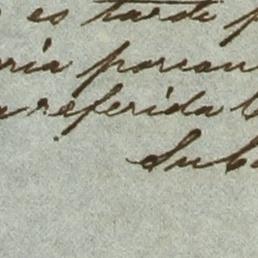 es tarde p
ria porcan
a referida l
Sub